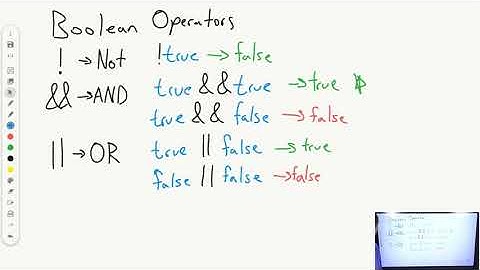 Boolean Operators
! → Not !true → false
&& → AND true && true → true
true && false → false
|| → OR true || false → true
false || false → false